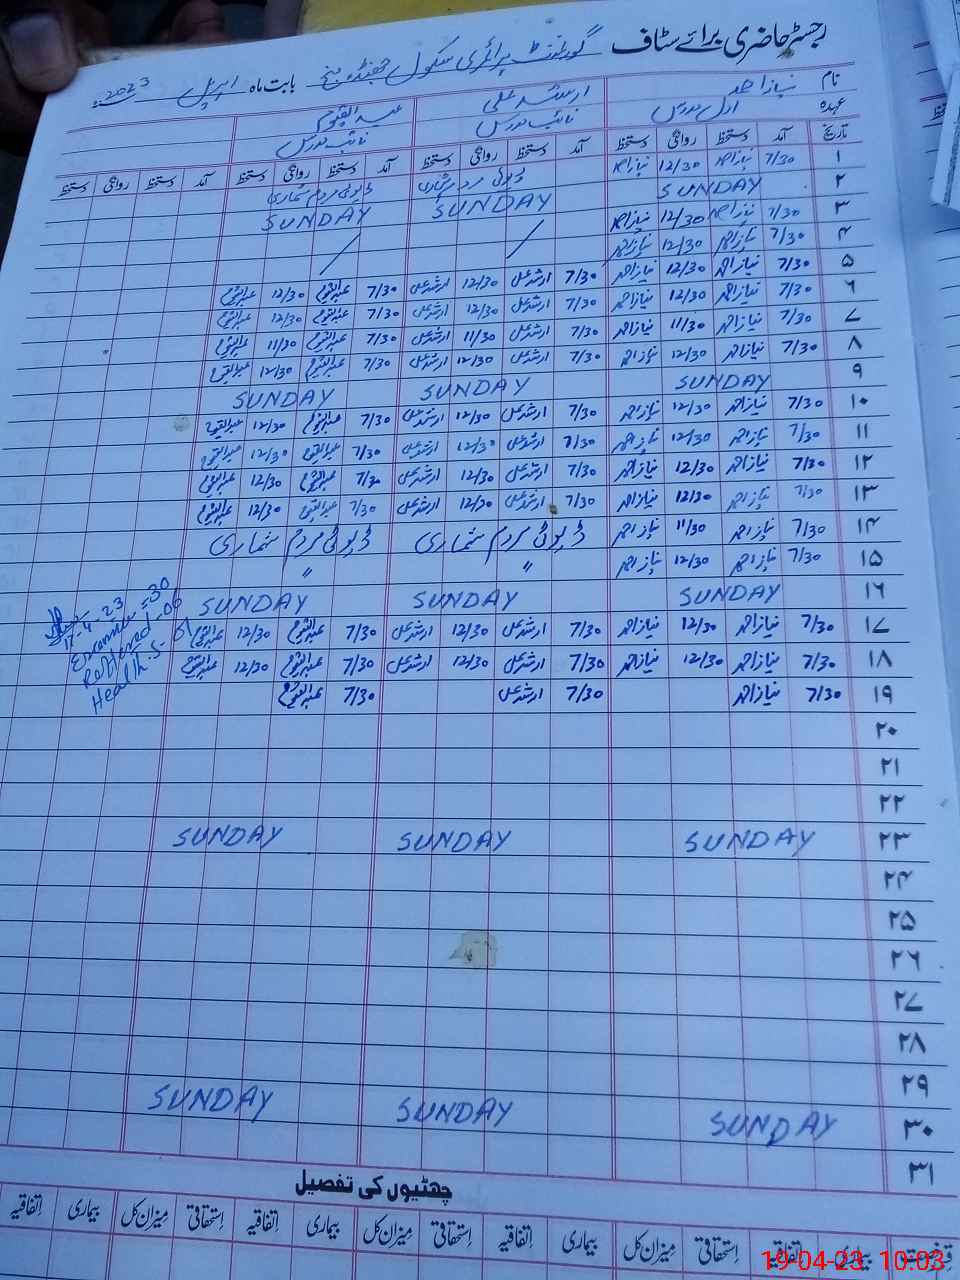 رجسٹر حاضری برائے سٹاف گورنمنٹ پرائمری سکول جھنڈہ بابت ماہ اپریل 2023
نام نیاز احمد ارشد علی عبدالقیوم
عہدہ اول مدرس نائب مدرس نائب مدرس
تاریخ آمد دستخط روانگی دستخط آمد دستخط روانگی دستخط آمد دستخط روانگی دستخط آمد دستخط روانگی دستخط
۱ 7/30 نیاز احمد 12/30 نیاز احمد ڈیوٹی مردم شماری ڈیوٹی مردم شماری
۲ SUNDAY SUNDAY SUNDAY
۳ 7/30 نیاز احمد 12/30 نیاز احمد
۴ 7/30 نیاز احمد 12/30 نیاز احمد
۵ 7/30 نیاز احمد 12/30 نیاز احمد 7/30 ارشد علی 12/30 ارشد علی 7/30 عبدالقیوم 12/30 عبدالقیوم
۶ 7/30 نیاز احمد 12/30 نیاز احمد 7/30 ارشد علی 12/30 ارشد علی 7/30 عبدالقیوم 12/30 عبدالقیوم
۷ 7/30 نیاز احمد 11/30 نیاز احمد 7/30 ارشد علی 11/30 ارشد علی 7/30 عبدالقیوم 11/30 عبدالقیوم
۸ 7/30 نیاز احمد 12/30 نیاز احمد 7/30 ارشد علی 12/30 ارشد علی 7/30 عبدالقیوم 12/30 عبدالقیوم
۹ SUNDAY SUNDAY SUNDAY
۱۰ 7/30 نیاز احمد 12/30 نیاز احمد 7/30 ارشد علی 12/30 ارشد علی 7/30 عبدالقیوم 12/30 عبدالقیوم
۱۱ 7/30 نیاز احمد 12/30 نیاز احمد 7/30 ارشد علی 12/30 ارشد علی 7/30 عبدالقیوم 12/30 عبدالقیوم
۱۲ 7/30 نیاز احمد 12/30 نیاز احمد 7/30 ارشد علی 12/30 ارشد علی 7/30 عبدالقیوم 12/30 عبدالقیوم
۱۳ 7/30 نیاز احمد 12/30 نیاز احمد 7/30 ارشد علی 12/30 ارشد علی 7/30 عبدالقیوم 12/30 عبدالقیوم
۱۴ 7/30 نیاز احمد 11/30 نیاز احمد ڈیوٹی مردم شماری ڈیوٹی مردم شماری
۱۵ 7/30 نیاز احمد 12/30 نیاز احمد " "
۱۶ SUNDAY SUNDAY SUNDAY
۱۷ 7/30 نیاز احمد 12/30 نیاز احمد 7/30 ارشد علی 12/30 ارشد علی 7/30 عبدالقیوم 12/30 عبدالقیوم
۱۸ 7/30 نیاز احمد 12/30 نیاز احمد 7/30 ارشد علی 12/30 ارشد علی 7/30 عبدالقیوم 12/30 عبدالقیوم
۱۹ 7/30 نیاز احمد 7/30 ارشد علی 7/30 عبدالقیوم
17-4-23
Examine = 30
Reffered - 06
Health.S.
۲۰
۲۱
۲۲
۲۳ SUNDAY SUNDAY SUNDAY
۲۴
۲۵
۲۶
۲۷
۲۸
۲۹
۳۰ SUNDAY SUNDAY SUNDAY
۳۱
چھٹیوں کی تفصیل
اتفاقیہ بیماری استحقاقی میزان کل بیماری اتفاقیہ استحقاقی میزان کل بیماری اتفاقیہ استحقاقی میزان کل بیماری اتفاقیہ
19-04-23 10:03